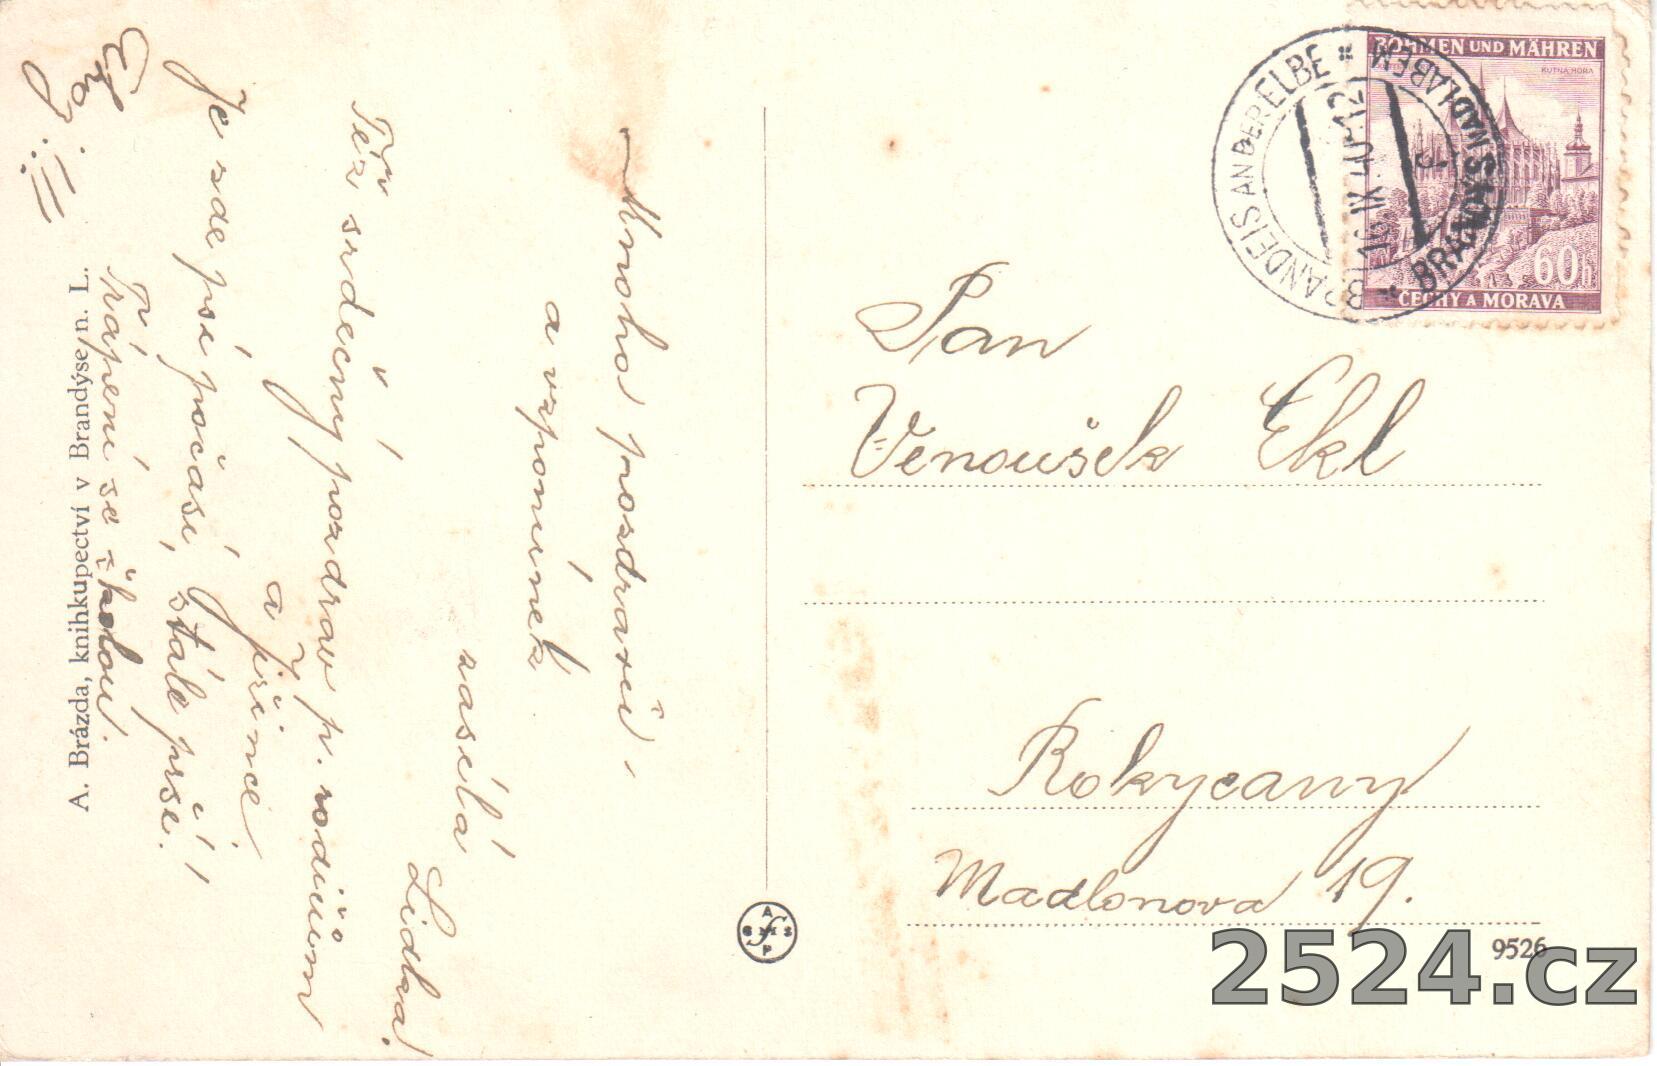 Mnoho pozdravů
a vzpomínek
zasílá
Lidka.
Též srdečný pozdrav p. rodičům
a Jřince.
Je zde psí počasí, stále prší!
Trápení se školou.
A. Brázda, knihkupectví v Brandýse n. L.
BÖHMEN UND MÄHREN
KUTNÁ HORA
60h
ČECHY A MORAVA
BRANDEIS AN DER ELBE
BRANDÝS NAD LABEM
16.IX.40-12
Pan
Venoušek Ekl
Rokycany
Madlonova 19.
9526
2524.cz